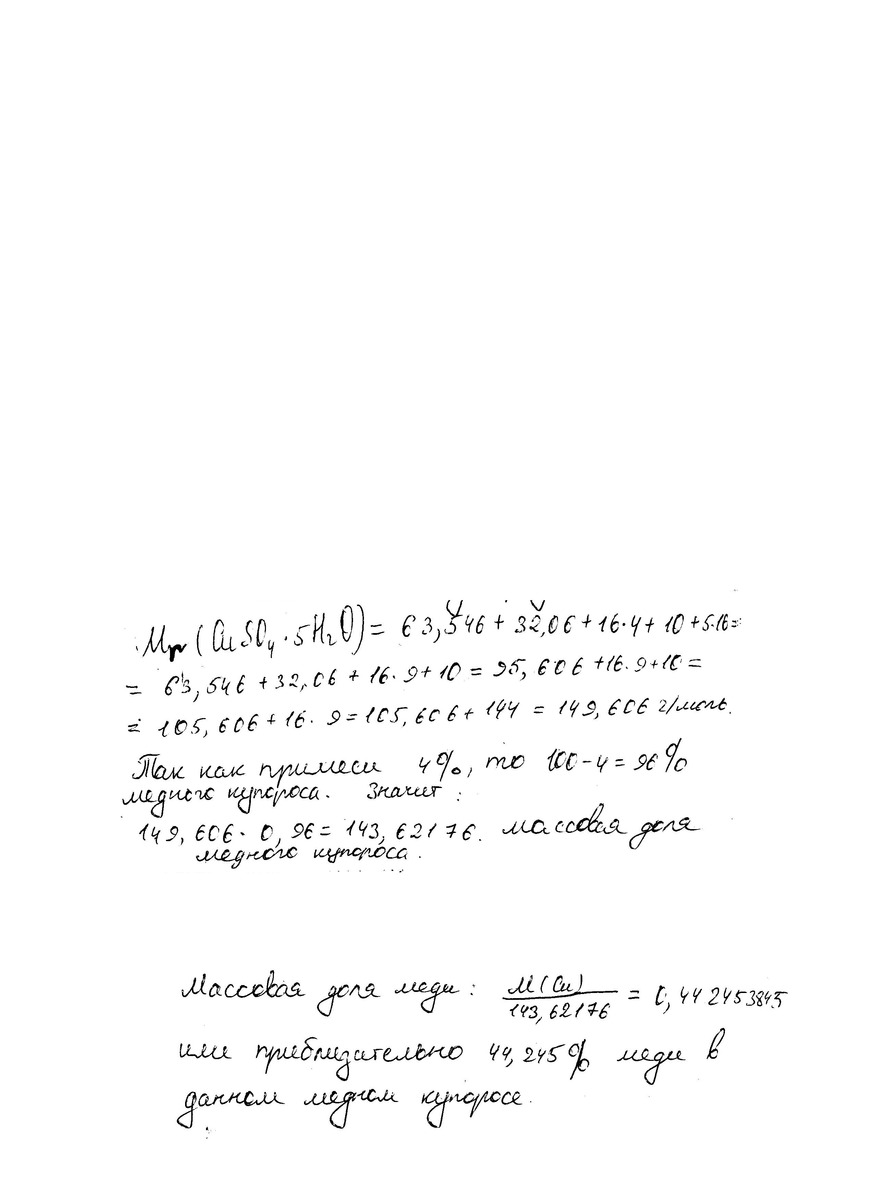 Mr (CuSO₄ · 5H₂O) = 63,546 + 32,06 + 16·4 + 10 + 5·16 =
= 63,546 + 32,06 + 16 · 9 + 10 = 95,606 + 16 · 9 + 10 =
= 105,606 + 16 · 9 = 105,606 + 144 = 149,606 г/моль.
Так как примеси 4%, то 100 - 4 = 96%
медного купороса. Значит :
149,606 · 0,96 = 143,62176. массовая доля
медного купороса.
Массовая доля меди : M(Cu) / 143,62176 = 0,442453845
или приблизительно 44,245% меди в
данном медном купоросе.